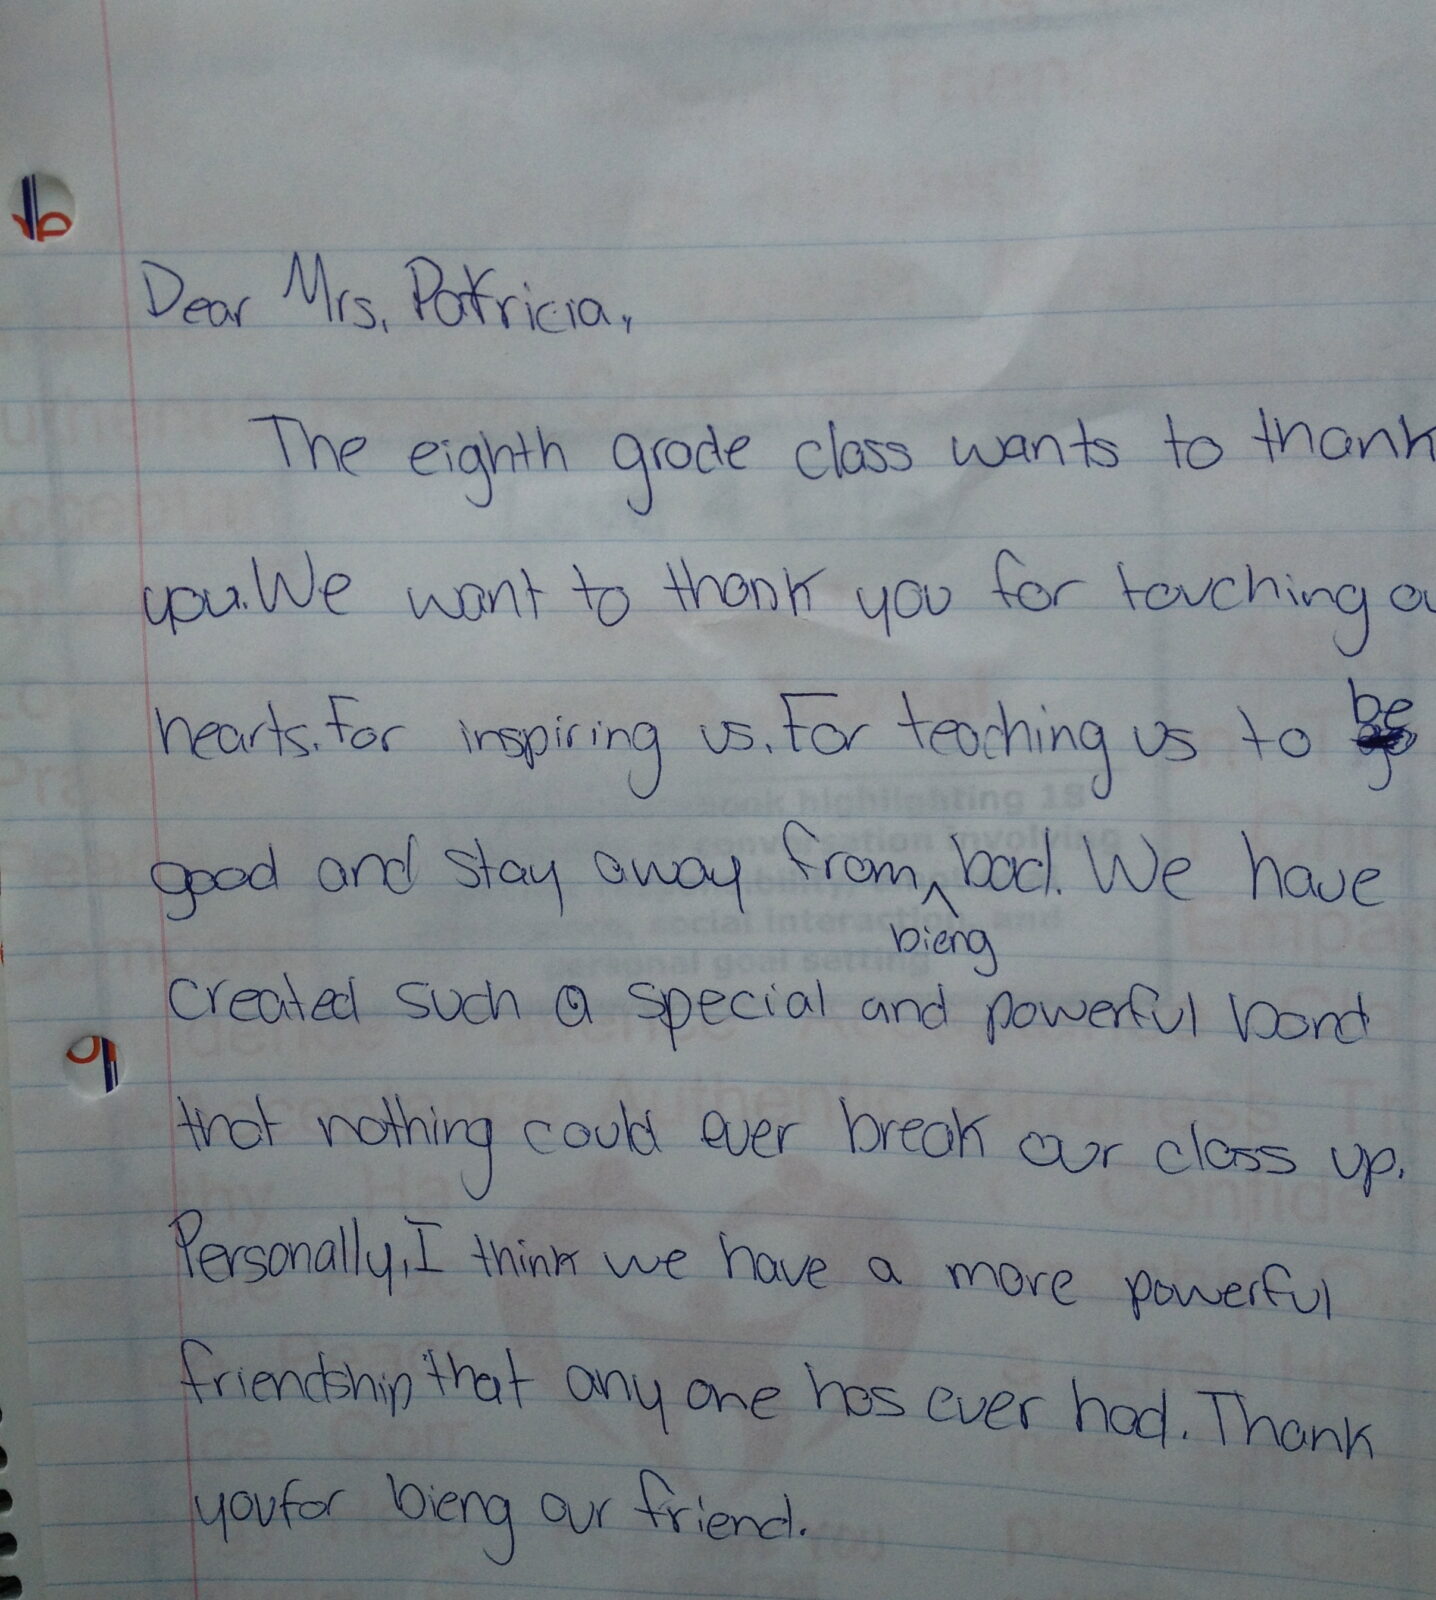 Dear Mrs. Patricia,
The eighth grade class wants to thank
you. We want to thank you for touching ou
hearts. For inspiring us. For teaching us to be
good and stay away from ^ bad. We have
bieng
created such a special and powerful bond
that nothing could ever break our class up.
Personally, I think we have a more powerful
friendship that any one has ever had. Thank
you for bieng our friend.